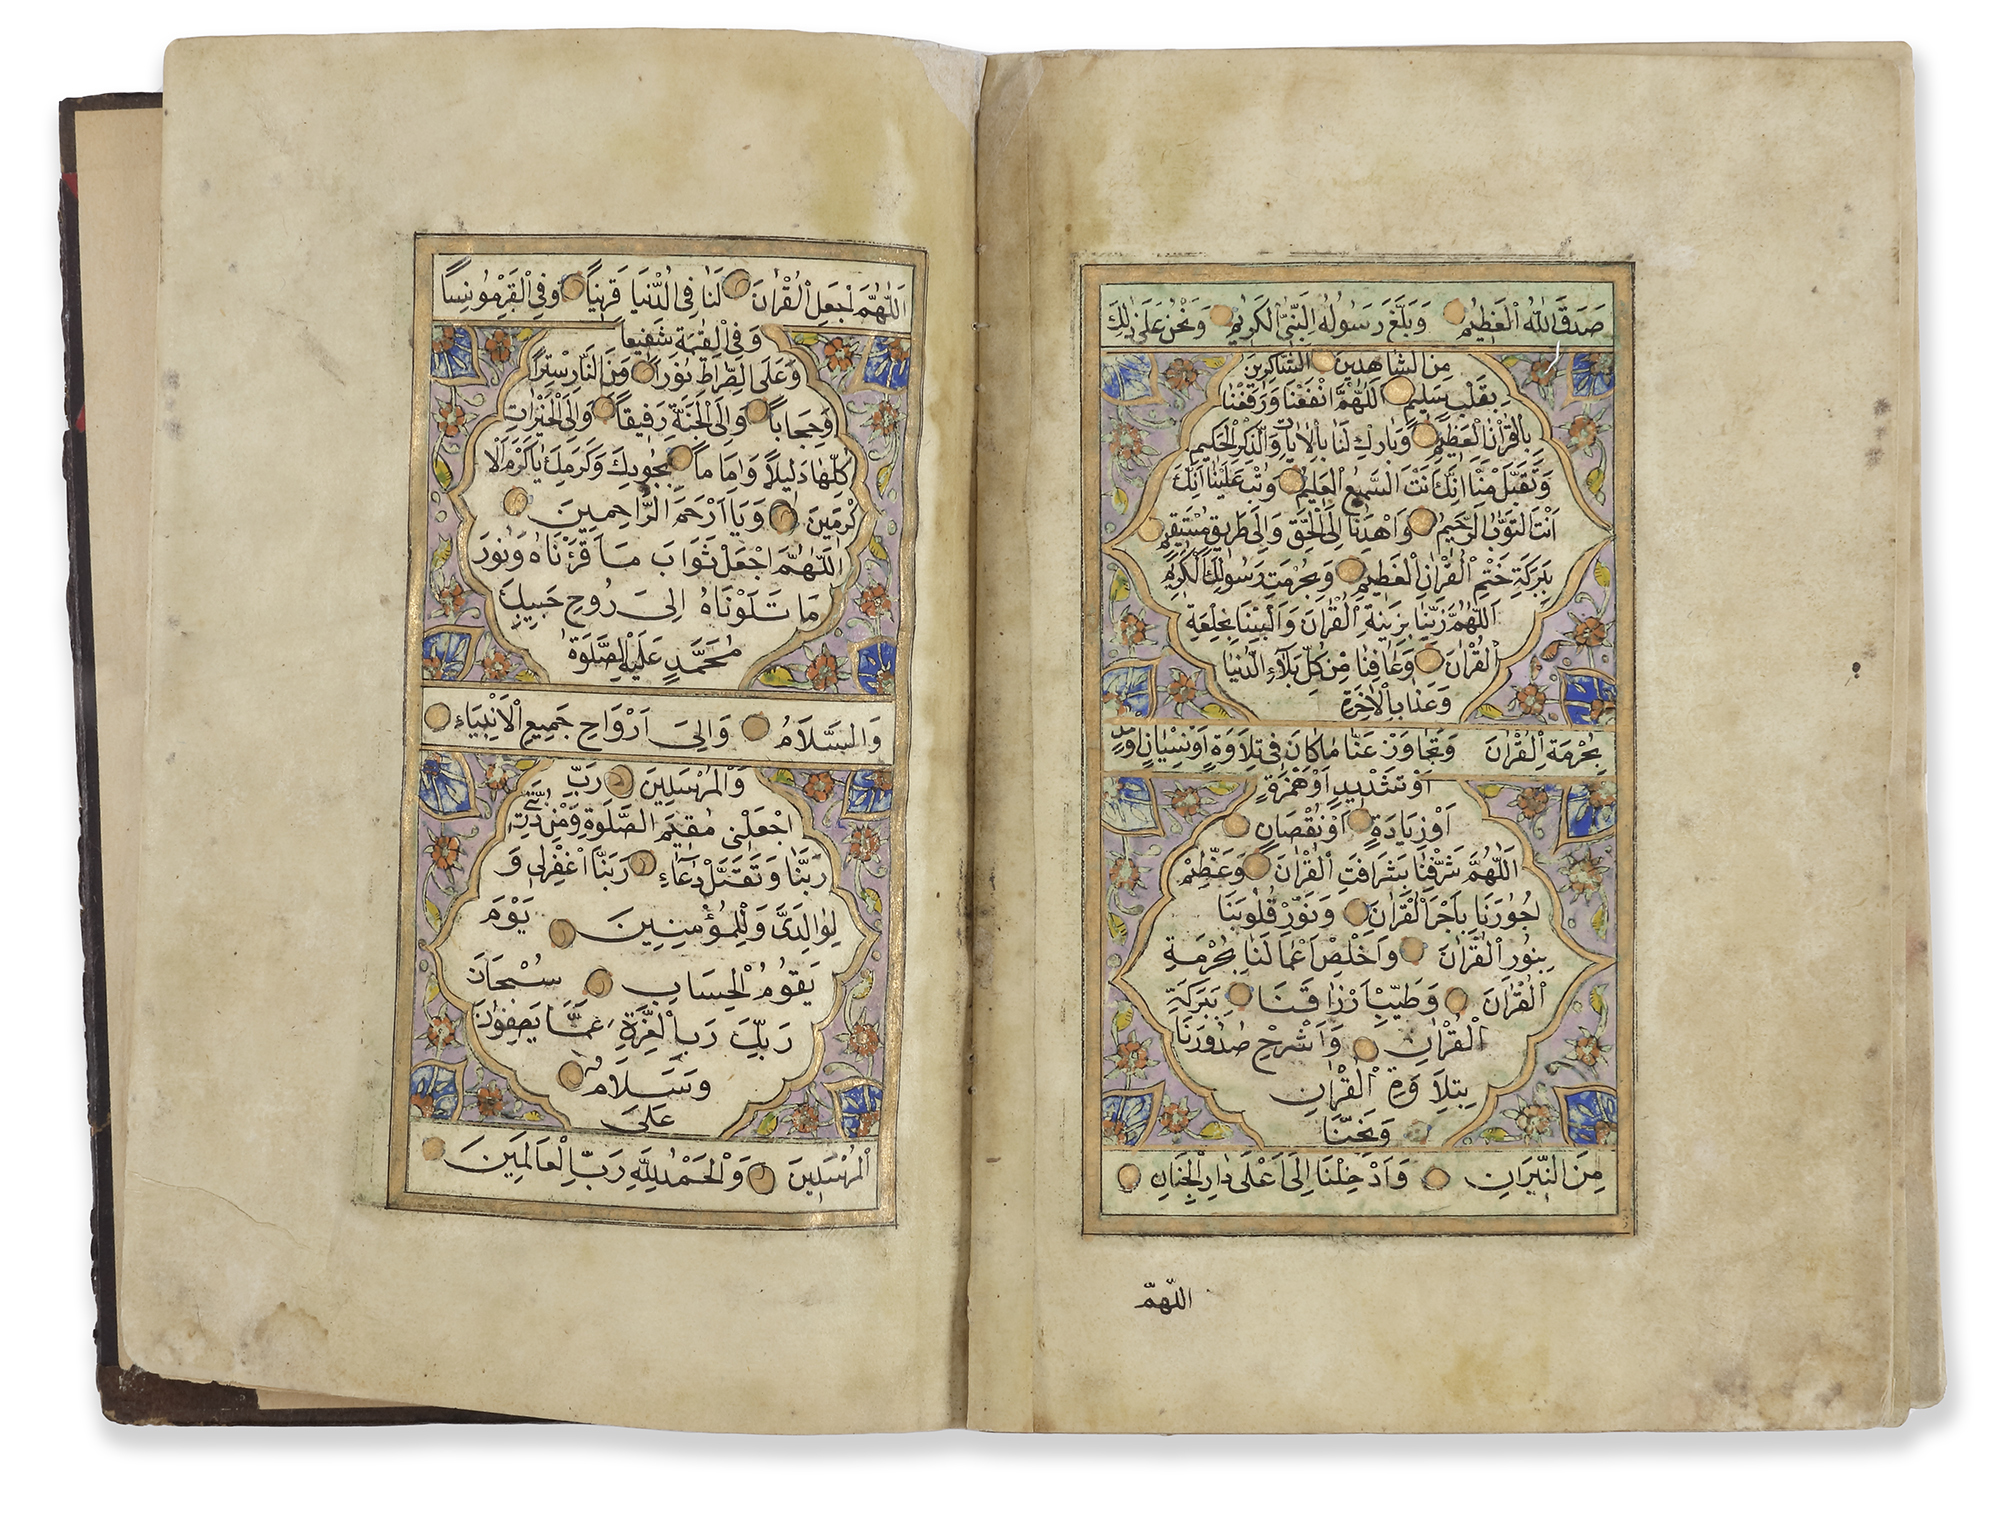 صَدَقَ اللهُ الْعَظِيمُ وَبَلَّغَ رَسُولُهُ النَّبِيُّ الْكَرِيمُ وَنَحْنُ عَلَى ذٰلِكَ
مِنَ الشَّاهِدِينَ الشَّاكِرِينَ
بِقَلْبٍ سَلِيمٍ اَللّٰهُمَّ انْفَعْنَا وَرْفَعْنَا
بِالْقُرْاٰنِ الْعَظِيمِ وَبَارِكْ لَنَا بِالْاٰيَاتِ وَالذِّكْرِ الْحَكِيمِ
وَتَقَبَّلْ مِنَّا اِنَّكَ اَنْتَ السَّمِيعُ الْعَلِيمُ وَتُبْ عَلَيْنَا اِنَّكَ
اَنْتَ التَّوَّابُ الرَّحِيمُ وَاهْدِنَا اِلَى الْحَقِّ وَاِلَى طَرِيقٍ مُسْتَقِيمٍ
بِبَرَكَةِ خَتْمِ الْقُرْاٰنِ الْعَظِيمِ وَبِحُرْمَتِ رَسُولِكَ الْكَرِيمِ
اَللّٰهُمَّ زَيِّنَّا بِزِينَةِ الْقُرْاٰنِ وَاَلْبِسْنَا بِخِلْعَةِ
الْقُرْاٰنِ وَعَافِنَا مِنْ كُلِّ بَلَاءِ الدُّنْيَا
وَعَذَابِ الْاٰخِرَةِ
بِحُرْمَةِ الْقُرْاٰنَ وَتَجَاوَزْ عَنَّا مَا كَانَ فِى تِلَاوَةٍ اَوْ نِسْيَانٍ اَوْ مَدٍّ
اَوْ تَشْدِيدٍ اَوْ هَمْزَةٍ
اَوْ زِيَادَةٍ اَوْ نُقْصَانٍ
اَللّٰهُمَّ شَرِّفْنَا بِشَرَافَتِ الْقُرْاٰنَ وَعَظِّمْ
اُجُورَنَا بِاَجْرِ الْقُرْاٰنَ وَنَوِّرْ قُلُوبَنَا
بِنُورِ الْقُرْاٰنَ وَاَخْلِصْ اَعْمَالَنَا بِحُرْمَةِ
الْقُرْاٰنَ وَطَيِّبْ اَرْزَاقَنَا بِبَرَكَةِ
الْقُرْاٰنِ وَاشْرَحْ صُدُورَنَا
بِتِلَاوَةِ الْقُرْاٰنِ
وَنَجِّنَا
مِنَ النِّيرَانِ وَاَدْخِلْنَا اِلَى اَعْلَى دَارِ الْجِنَانِ
اللّٰهمّ
اَللّٰهُمَّ اجْعَلِ الْقُرْاٰنَ لَنَا فِى الدُّنْيَا قَرِينًا وَفِى الْقَبْرِ مُونِسًا
وَفِى الْقِيٰمَةِ شَفِيعًا
وَعَلَى الصِّرَاطِ نُورًا وَمِنَ النَّارِ سِتْرًا
وَحِجَابًا وَاِلَى الْجَنَّةِ رَفِيقًا وَاِلَى الْخَيْرَاتِ
كُلِّهَا دَلِيلًا وَاِمَامًا بِجُودِكَ وَكَرَمِكَ يَا اَكْرَمَ الْا
كْرَمِينَ وَيَا اَرْحَمَ الرَّاحِمِينَ
اَللّٰهُمَّ اجْعَلْ ثَوَابَ مَا قَرَئْنَاهُ وَنُورَ
مَا تَلَوْنَاهُ اِلَى رُوحِ حَبِيبِكَ
مُحَمَّدٍ عَلَيْهِ الصَّلٰوةُ
وَالسَّلَامُ وَاِلَى اَرْوَاحِ جَمِيعِ الْاَنْبِيَاءِ
وَالْمُرْسَلِينَ رَبِّ
اجْعَلْنِى مُقِيمَ الصَّلٰوةِ وَمِنْ ذُرِّيَّتِى
رَبَّنَا وَتَقَبَّلْ دُعَاءِ رَبَّنَا اغْفِرْلِى وَ
لِوَالِدَىَّ وَلِلْمُؤْمِنِينَ يَوْمَ
يَقُومُ الْحِسَابِ سُبْحَانَ
رَبِّكَ رَبِّ الْعِزَّةِ عَمَّا يَصِفُونَ
وَسَلَامٌ
عَلَى
الْمُرْسَلِينَ وَالْحَمْدُ لِلّٰهِ رَبِّ الْعَالَمِينَ